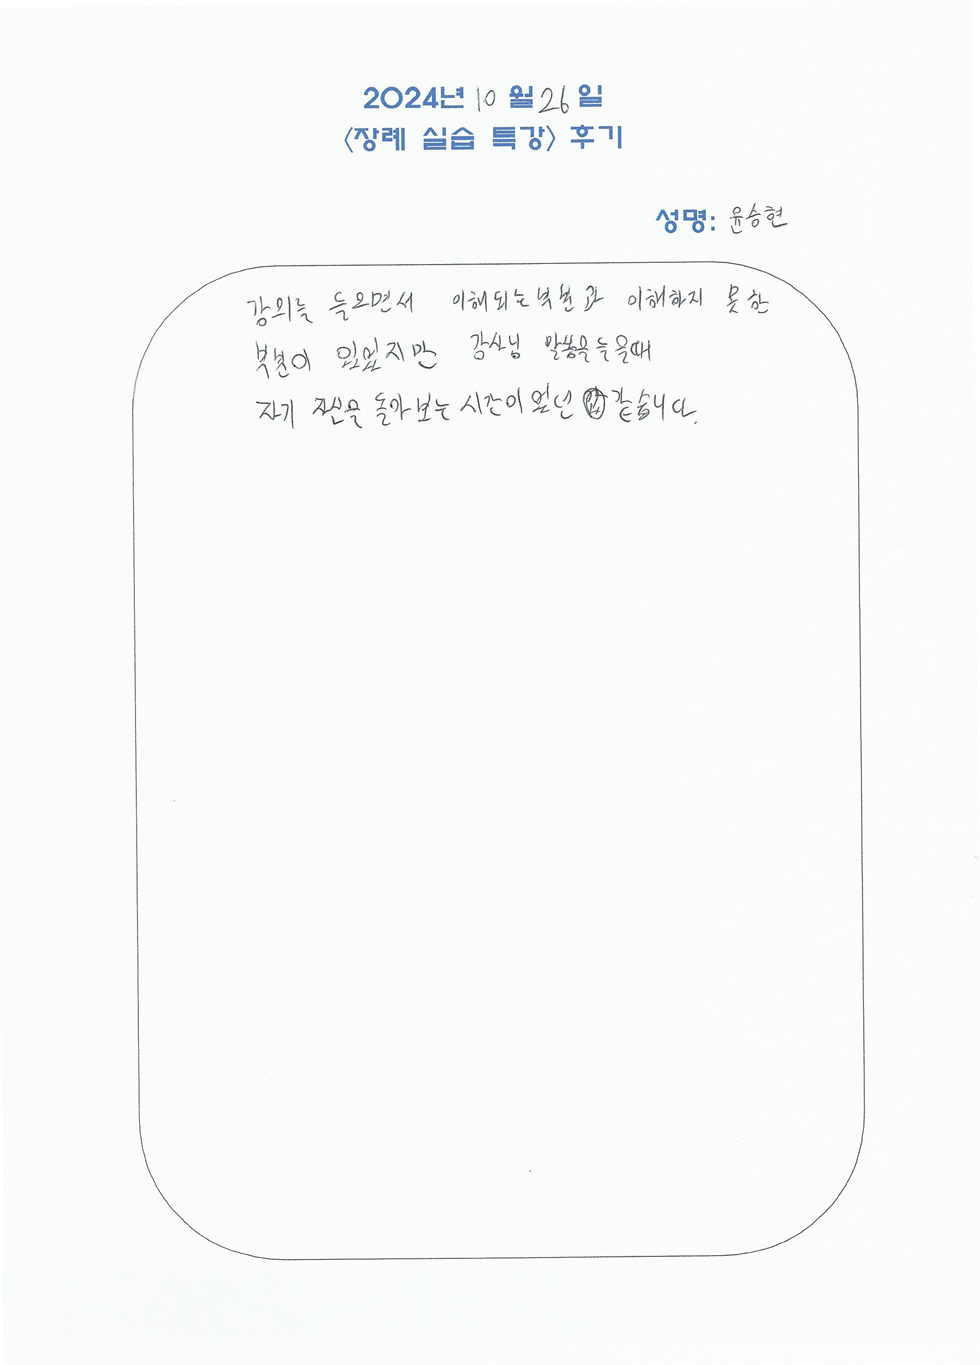 2024년 10 월 26 일
<장례 실습 특강> 후기
성명: 윤승현
강의를 들으면서 이해되는 부분과 이해하지 못한
부분이 있었지만 강사님 말씀을 들을때
자기 자신을 돌아보는 시간이 었던 같습니다.